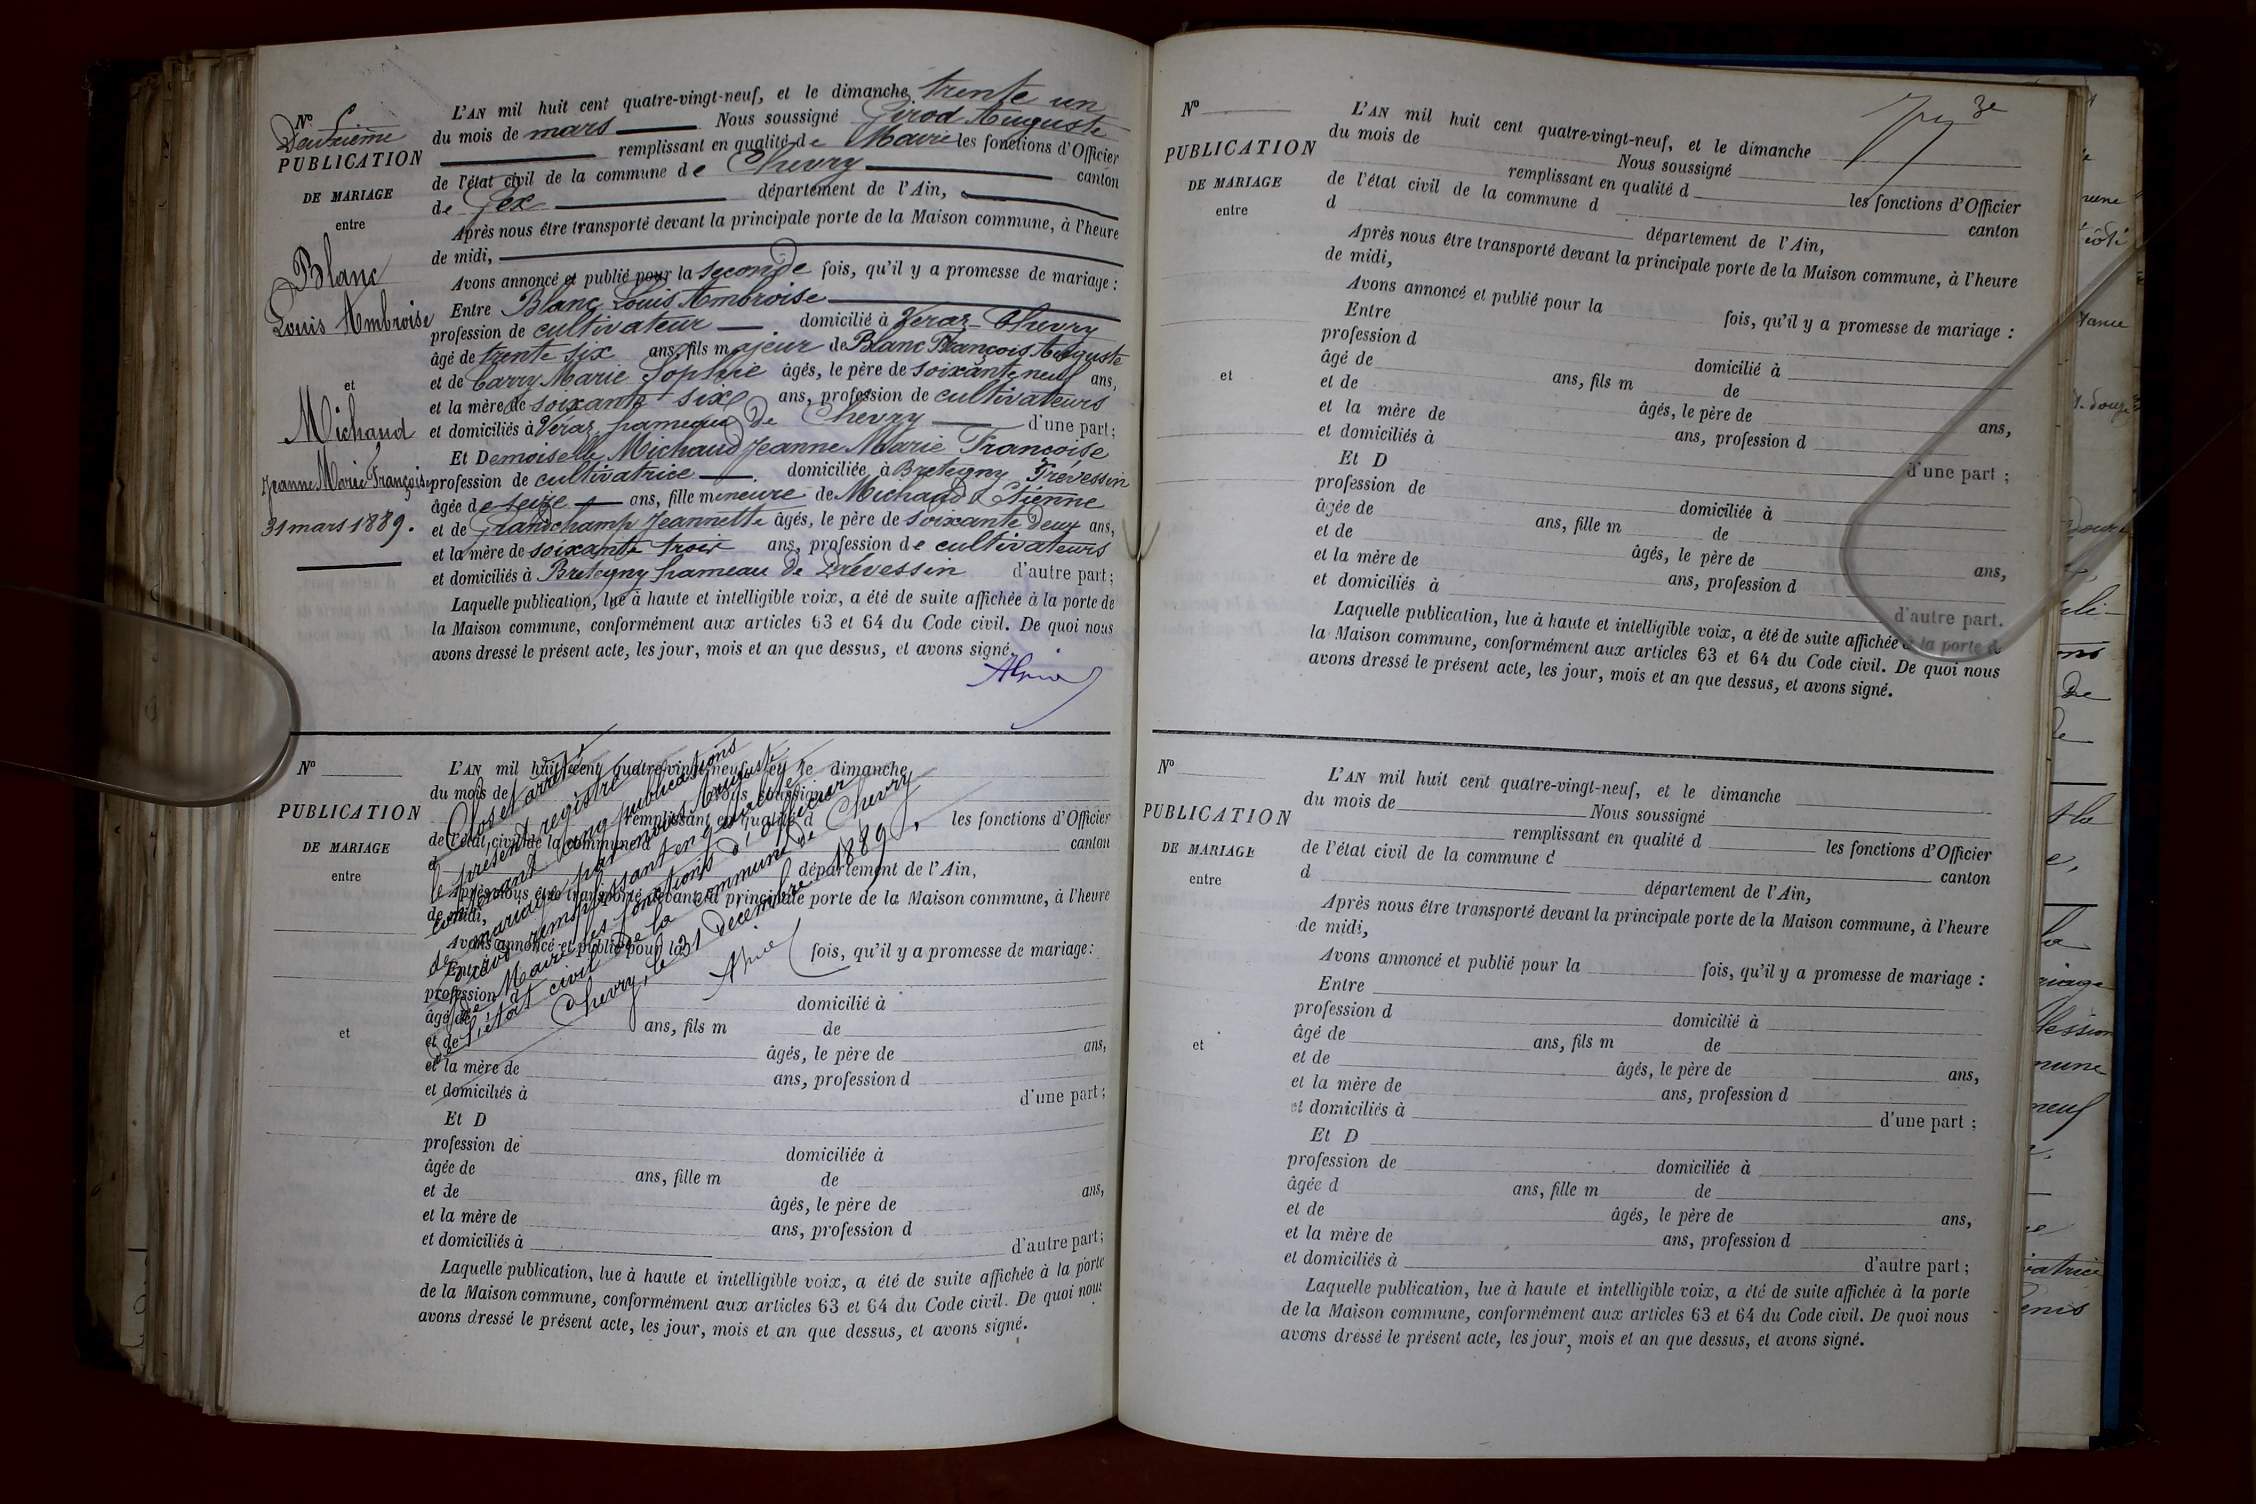 Nº
Deuxième
PUBLICATION
DE MARIAGE
entre
Blanc
Louis Ambroise
et
Michaud
Jeanne Marie Françoise
31 mars 1889.
L'AN mil huit cent quatre-vingt-neuf, et le dimanche trente un
du mois de mars Nous soussigné Girod Auguste
remplissant en qualité de Maire les fonctions d'Officier
de l'état civil de la commune de Chevry canton
de Gex département de l'Ain,
Après nous être transporté devant la principale porte de la Maison commune, à l'heure
de midi,
Avons annoncé et publié pour la seconde fois, qu'il y a promesse de mariage :
Entre Blanc Louis Ambroise
profession de cultivateur domicilié à Veraz-Chevry
âgé de trente six ans, fils majeur de Blanc François Auguste
et de Carry Marie Sophie âgés, le père de soixante neuf ans,
et la mère de soixante six ans, profession de cultivateurs
et domiciliés à Véraz hameau de Chevry d'une part;
Et Demoiselle Michaud Jeanne Marie Françoise
profession de cultivatrice domiciliée à Bretegny Prévessin
âgée de seize ans, fille mineure de Michaud Etienne
et de Grandchamp Jeannette âgés, le père de soixante deux ans,
et la mère de soixante trois ans, profession de cultivateurs
et domiciliés à Bretegny hameau de Prévessin d'autre part;
Laquelle publication, lue à haute et intelligible voix, a été de suite affichée à la porte de
la Maison commune, conformément aux articles 63 et 64 du Code civil. De quoi nous
avons dressé le présent acte, les jour, mois et an que dessus, et avons signé.
Nº
PUBLICATION
DE MARIAGE
entre
et
L'AN mil huit cent quatre-vingt-neuf, et le dimanche
du mois de Nous soussigné
remplissant en qualité d les fonctions d'Officier
de l'état civil de la commune d canton
d département de l'Ain,
Après nous être transporté devant la principale porte de la Maison commune, à l'heure
de midi,
Avons annoncé et publié pour la fois, qu'il y a promesse de mariage:
Entre
profession d domicilié à
âgé de ans, fils m de
et de âgés, le père de ans,
et la mère de ans, profession d
et domiciliés à d'une part;
Et D
profession de domiciliée à
âgée de ans, fille m de
et de âgés, le père de ans,
et la mère de ans, profession d
et domiciliés à d'autre part;
Laquelle publication, lue à haute et intelligible voix, a été de suite affichée à la porte
de la Maison commune, conformément aux articles 63 et 64 du Code civil. De quoi nous
avons dressé le présent acte, les jour, mois et an que dessus, et avons signé.
Clos et arrêté
le présent registre
contenant cinq publications
de mariage par nous Auguste
Girod remplissant en qualité
de Maire les fonctions d'officier
de l'état civil de la commune de Chevry
Chevry, le 31 décembre 1889.
3e
Nº
PUBLICATION
DE MARIAGE
entre
et
L'AN mil huit cent quatre-vingt-neuf, et le dimanche
du mois de Nous soussigné
remplissant en qualité d les fonctions d'Officier
de l'état civil de la commune d canton
d département de l'Ain,
Après nous être transporté devant la principale porte de la Maison commune, à l'heure
de midi,
Avons annoncé et publié pour la fois, qu'il y a promesse de mariage :
Entre
profession d domicilié à
âgé de ans, fils m de
et de âgés, le père de ans,
et la mère de ans, profession d
et domiciliés à d'une part ;
Et D
profession de domiciliée à
âgée de ans, fille m de
et de âgés, le père de ans,
et la mère de ans, profession d
et domiciliés à d'autre part.
Laquelle publication, lue à haute et intelligible voix, a été de suite affichée à la porte d
la Maison commune, conformément aux articles 63 et 64 du Code civil. De quoi nous
avons dressé le présent acte, les jour, mois et an que dessus, et avons signé.
Nº
PUBLICATION
DE MARIAGE
entre
et
L'AN mil huit cent quatre-vingt-neuf, et le dimanche
du mois de Nous soussigné
remplissant en qualité d les fonctions d'Officier
de l'état civil de la commune d canton
d département de l'Ain,
Après nous être transporté devant la principale porte de la Maison commune, à l'heure
de midi,
Avons annoncé et publié pour la fois, qu'il y a promesse de mariage :
Entre
profession d domicilié à
âgé de ans, fils m de
et de âgés, le père de ans,
et la mère de ans, profession d
et domiciliés à d'une part ;
Et D
profession de domiciliée à
âgée d ans, fille m de
et de âgés, le père de ans,
et la mère de ans, profession d
et domiciliés à d'autre part ;
Laquelle publication, lue à haute et intelligible voix, a été de suite affichée à la porte
de la Maison commune, conformément aux articles 63 et 64 du Code civil. De quoi nous
avons dressé le présent acte, les jour, mois et an que dessus, et avons signé.